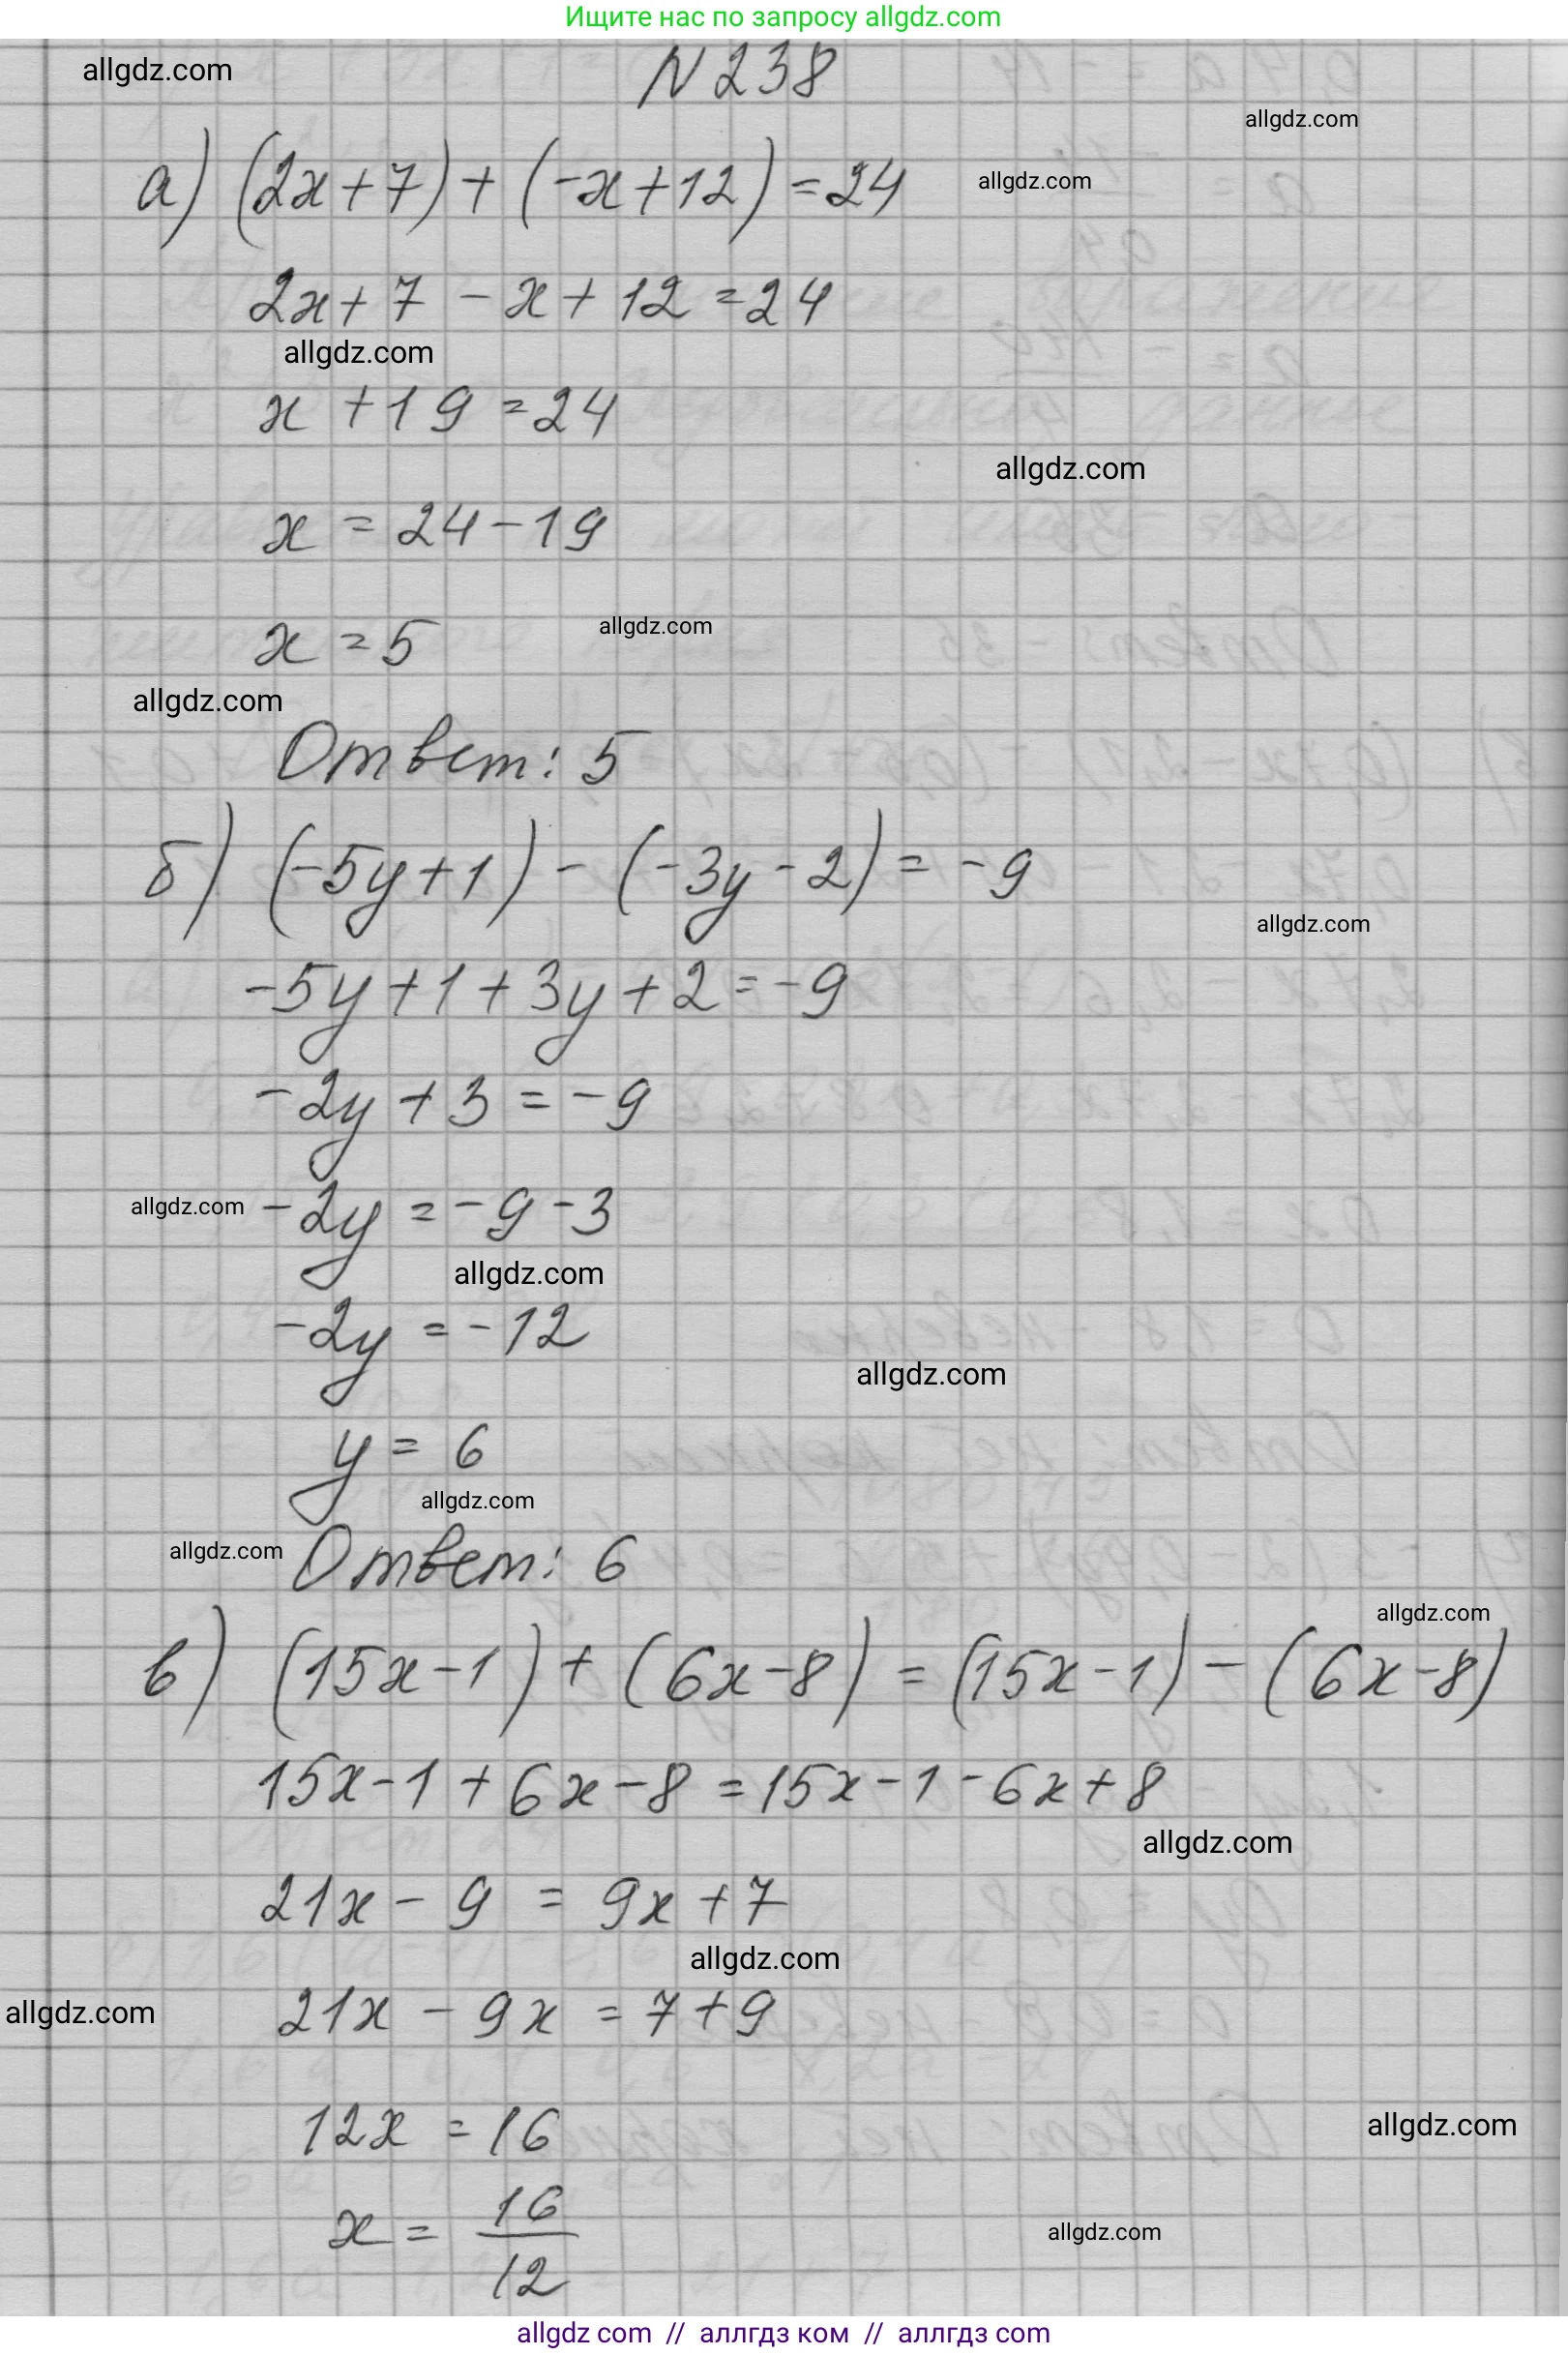 Ищите нас по запросу allgdz.com
allgdz.com
N 238
allgdz.com
а) (2x+7)+(-x+12)=24
allgdz.com
2x+7-x+12=24
allgdz.com
x+19=24
allgdz.com
x=24-19
x=5
allgdz.com
allgdz.com
Ответ: 5
б) (-5y+1)-(-3y-2)=-9
allgdz.com
-5y+1+3y+2=-9
-2y+3=-9
allgdz.com
-2y=-9-3
allgdz.com
-2y=-12
allgdz.com
y=6
allgdz.com
allgdz.com
Ответ: 6
allgdz.com
в) (15x-1)+(6x-8)=(15x-1)-(6x-8)
15x-1+6x-8=15x-1-6x+8
allgdz.com
21x-9=9x+7
allgdz.com
allgdz.com
21x-9x=7+9
12x=16
allgdz.com
x=16/12
allgdz.com
allgdz com // аллгдз ком // аллгдз com